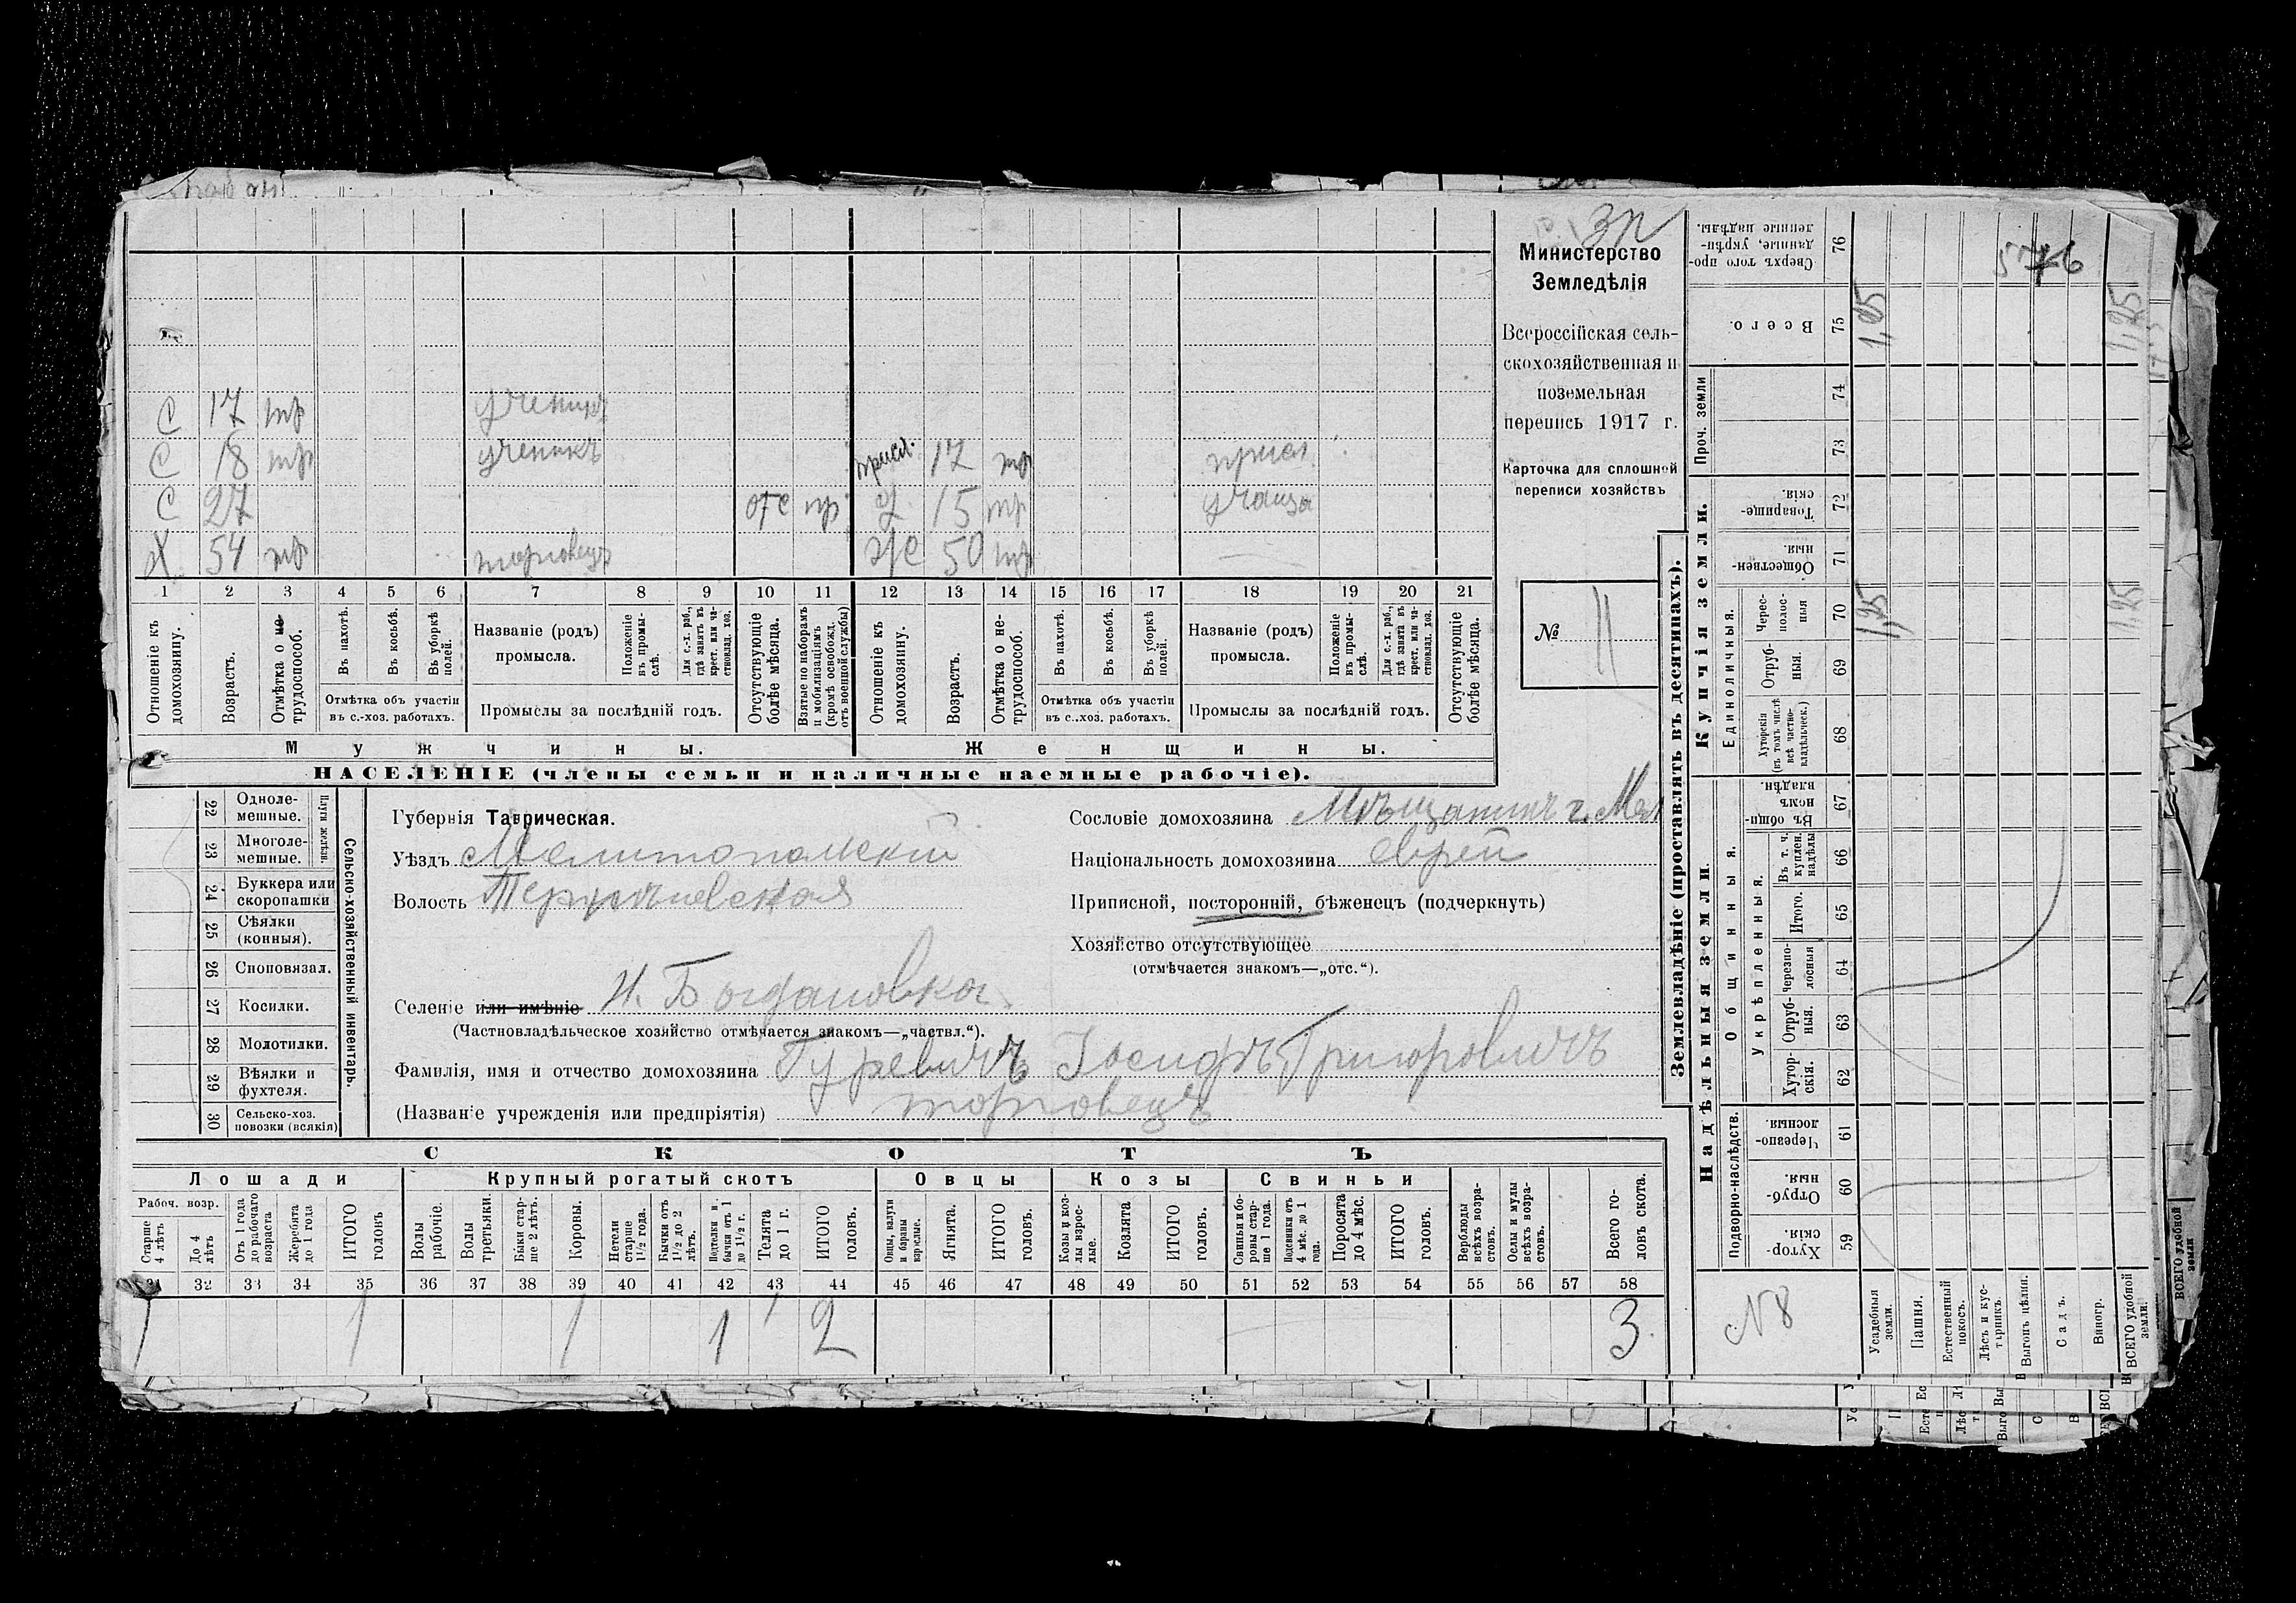 3п
Министерство
Земледѣлія
Всероссійская сель-
скохозяйственная и
поземельная
перепись 1917 г.
Карточка для сплошной
переписи хозяйствъ
№ 11
С 17 тр ученикъ
С 18 тр ученикъ присл. 17 тр присл.
С 27 отс пр д 15 тр учаща
Х 54 тр торговецъ ж 50 тр —
1 2 3 4 5 6 7 8 9 10 11 12 13 14 15 16 17 18 19 20 21
Отношеніе къ домохозяину.
Возрастъ.
Отмѣтка о не-трудоспособ.
Въ пахотѣ.
Въ косьбѣ.
Въ уборкѣ полей.
Отмѣтка объ участіи въ с.-хоз. работахъ.
Названіе (родъ) промысла.
Положеніе въ промы-слѣ.
Для с.-х. раб., гдѣ занятъ въ крест. или ча-ствовлад. хоз.
Промыслы за послѣдній годъ.
Отсутствующіе болѣе мѣсяца.
Взятые по наборамъ и мобилизаціямъ (кромѣ освобожд. отъ военной службы)
Отношеніе къ домохозяину.
Возрастъ.
Отмѣтка о не-трудоспособ.
Въ пахотѣ.
Въ косьбѣ.
Въ уборкѣ полей.
Отмѣтка объ участіи въ с..хоз. работахъ.
Названіе (родъ) промысла.
Положеніе въ промы-слѣ.
Для с.-х. раб., гдѣ занята въ крест. или ча-ствовлад. хоз.
Промыслы за послѣдній годъ.
Отсутствующіе болѣе мѣсяца.
Мужчины. Женщины.
НАСЕЛЕНІЕ (члены семьи и наличные наемные рабочіе).
22 Одноле-мешные.
23 Многоле-мешные.
Плуги желѣзн.
24 Буккера или скоропашки
25 Сѣялки (конныя).
26 Сноповязал.
27 Косилки.
28 Молотилки.
29 Вѣялки и фухтеля.
30 Сельско-хоз. повозки (всякія)
Сельско-хозяйственный инвентарь.
Губернія Таврическая.
Уѣздъ Мелитопольскій
Волость
Селеніе или имѣніе Н. Богдановка
(Частновладѣльческое хозяйство отмѣчается знакомъ—„частвл.“).
Фамилія, имя и отчество домохозяина Гуревичъ Іосифъ Григоровичъ
(Названіе учрежденія или предпріятія) торговецъ
Сословіе домохозяина Мѣщанинъ г. Мел
Національность домохозяина еврей
Приписной, посторонній, бѣженецъ (подчеркнуть)
Хозяйство отсутствующее
(отмѣчается знакомъ—„отс.“).
СКОТЪ
Лошади Крупный рогатый скотъ Овцы Козы Свиньи
Рабоч. возр.
Старше 4 лѣтъ
До 4 лѣтъ
Отъ 1 года до рабочаго возраста
Жеребята до 1 года
ИТОГО головъ
Волы рабочіе.
Волы третьяки.
Быки стар-ше 2 лѣтъ.
Коровы.
Нетели старше 1½ года.
Бычки отъ 1½ до 2 лѣтъ.
Подтелки и бычки отъ 1 до 1½ г.
Телята до 1 г.
ИТОГО головъ.
Овцы, валухи и бараны взрослые.
Ягнята.
ИТОГО головъ.
Козы и коз-лы взрос-лые.
Козлята
ИТОГО головъ.
Свиньи и бо-ровы стар-ше 1 года.
Подсвинки отъ 4 мѣс. до 1 года.
Поросята до 4 мѣс.
ИТОГО головъ.
Верблюды всѣхъ возра-стовъ.
Ослы и мулы всѣхъ возра-стовъ.
Всего го-ловъ скота.
31 32 33 34 35 36 37 38 39 40 41 42 43 44 45 46 47 48 49 50 51 52 53 54 55 56 57 58
1 1 1 1 2 3
Землевладѣніе (проставлять въ десятинахъ).
Купчія земли.
Надѣльныя земли.
Сверхъ того про-данные, укрѣп-ленные надѣлы. 76
Всего. 75
Проч. земли 74 73
Товарище-скія. 72
Обществен-ныя. 71
Единоличныя.
Черес-полос-ныя 70
Отруб-ныя. 69
Хуторскія (въ томъ числѣ всѣ частно-владѣльческ.) 68
Общинныя.
Въ общин-номъ владѣн. 67
Укрѣпленныя.
Въ т. ч. куплен. надѣлы 66
Итого. 65
Черезпо-лосныя 64
Отруб-ныя. 63
Хутор-скія. 62
Подворно-наслѣдств.
Черезпо-лосныя. 61
Отруб-ныя. 60
Хутор-скія. 59
1,25 1,25
1,25 1,25
N 8
Усадебныя земли.
Пашня.
Естественный покосъ.
Лѣсъ и кус-тарникъ.
Выгонъ цѣлин.
Садъ.
Виногр.
ВСЕГО удобной земли.
ВСЕГО удобной земли